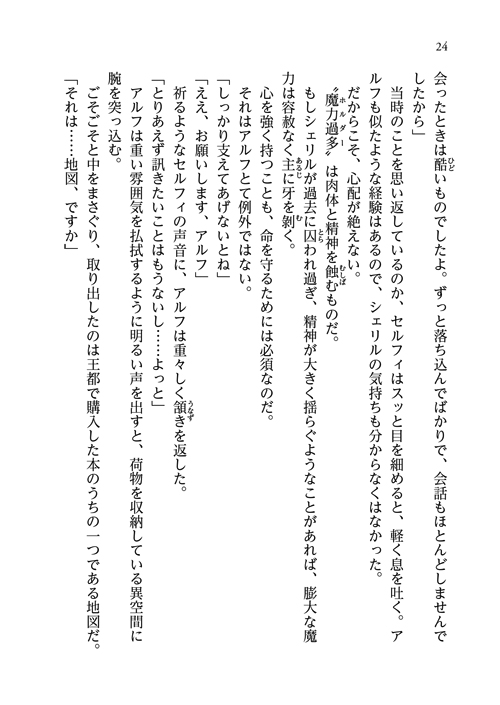 24
会ったときは酷いものでしたよ。ずっと落ち込んでばかりで、会話もほとんどしませんで
したから」
当時のことを思い返しているのか、セルフィはスッと目を細めると、軽く息を吐く。ア
ルフも似たような経験はあるので、シェリルの気持ちも分からなくはなかった。
だからこそ、心配が絶えない。
〝魔力過多〟は肉体と精神を蝕むものだ。
もしシェリルが過去に囚われ過ぎ、精神が大きく揺らぐようなことがあれば、膨大な魔
力は容赦なく主に牙を剝く。
心を強く持つことも、命を守るためには必須なのだ。
それはアルフとて例外ではない。
「しっかり支えてあげないとね」
「ええ、お願いします、アルフ」
祈るようなセルフィの声音に、アルフは重々しく頷きを返した。
「とりあえず訊きたいことはもうないし……よっと」
アルフは重い雰囲気を払拭するように明るい声を出すと、荷物を収納している異空間に
腕を突っ込む。
ごそごそと中をまさぐり、取り出したのは王都で購入した本のうちの一つである地図だ。
「それは……地図、ですか」